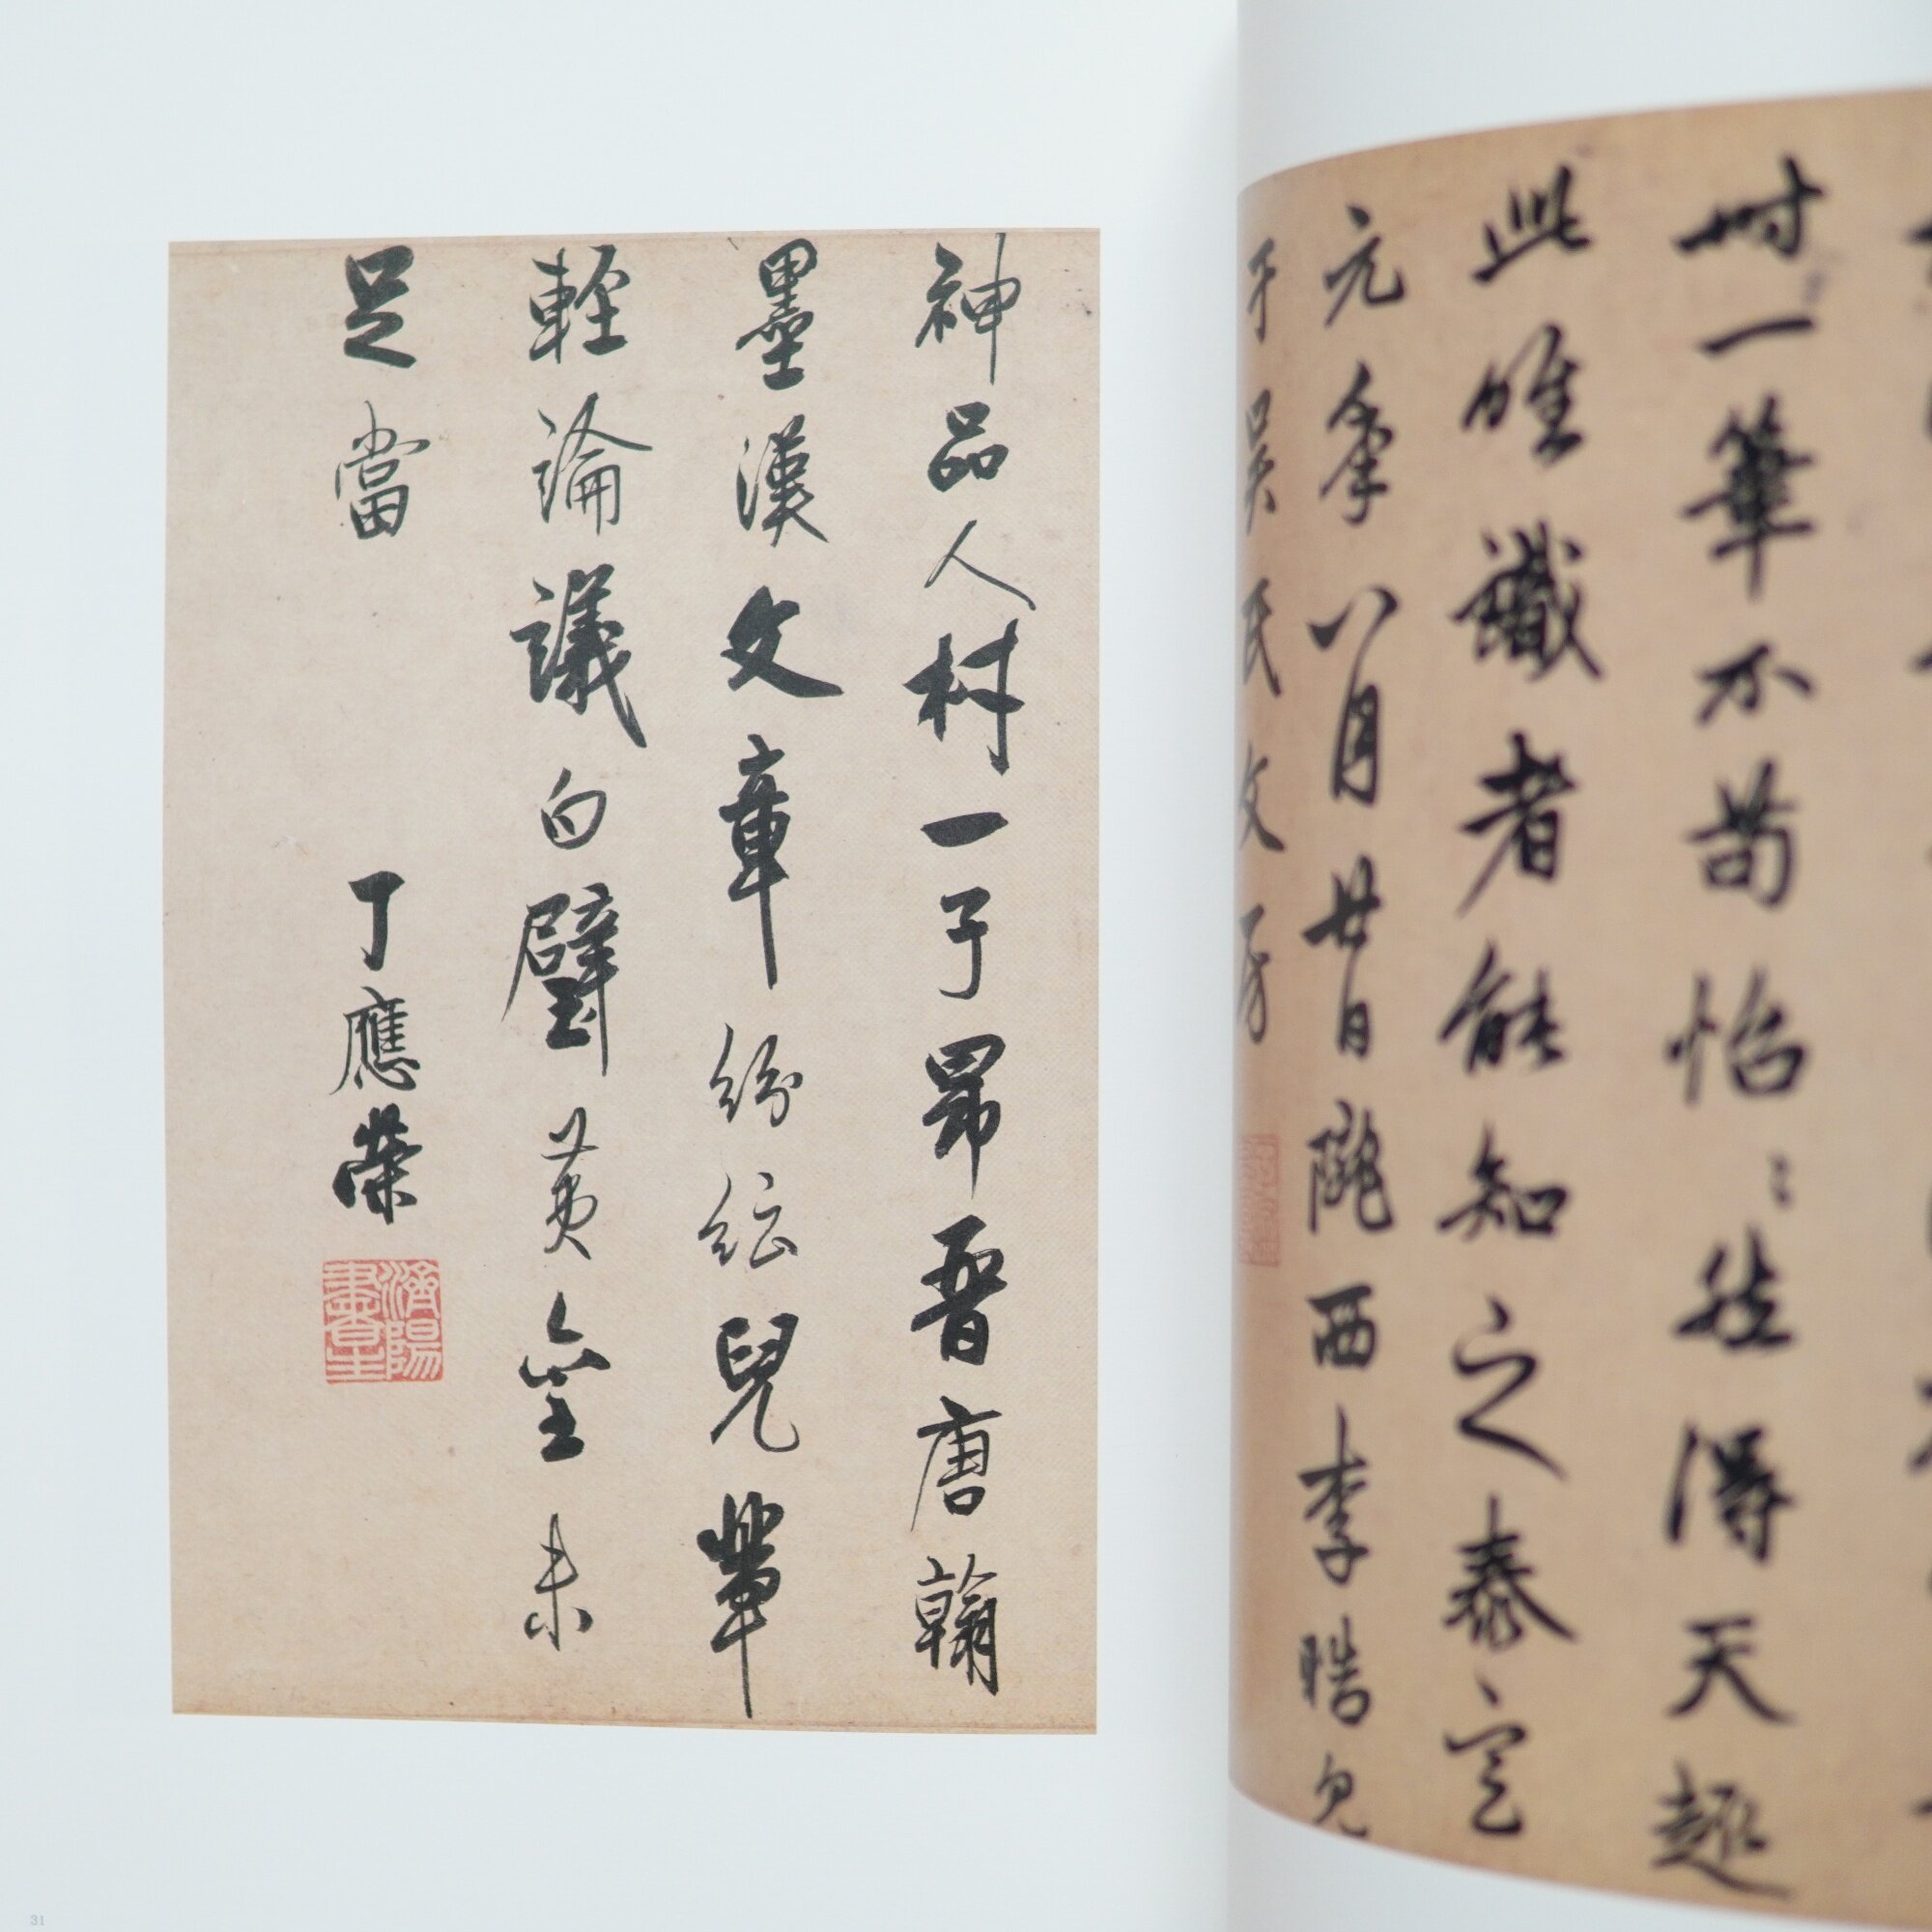 時一筆不苟怡〻然得天趣
此唯識者能知之泰定
元年八月廿日隴西李晧
于吳氏文房
神品人材一子昂晉唐翰
墨漢文章紛紜兒輩
輕論議白璧黃金未
足當 丁應榮
濟陽
31